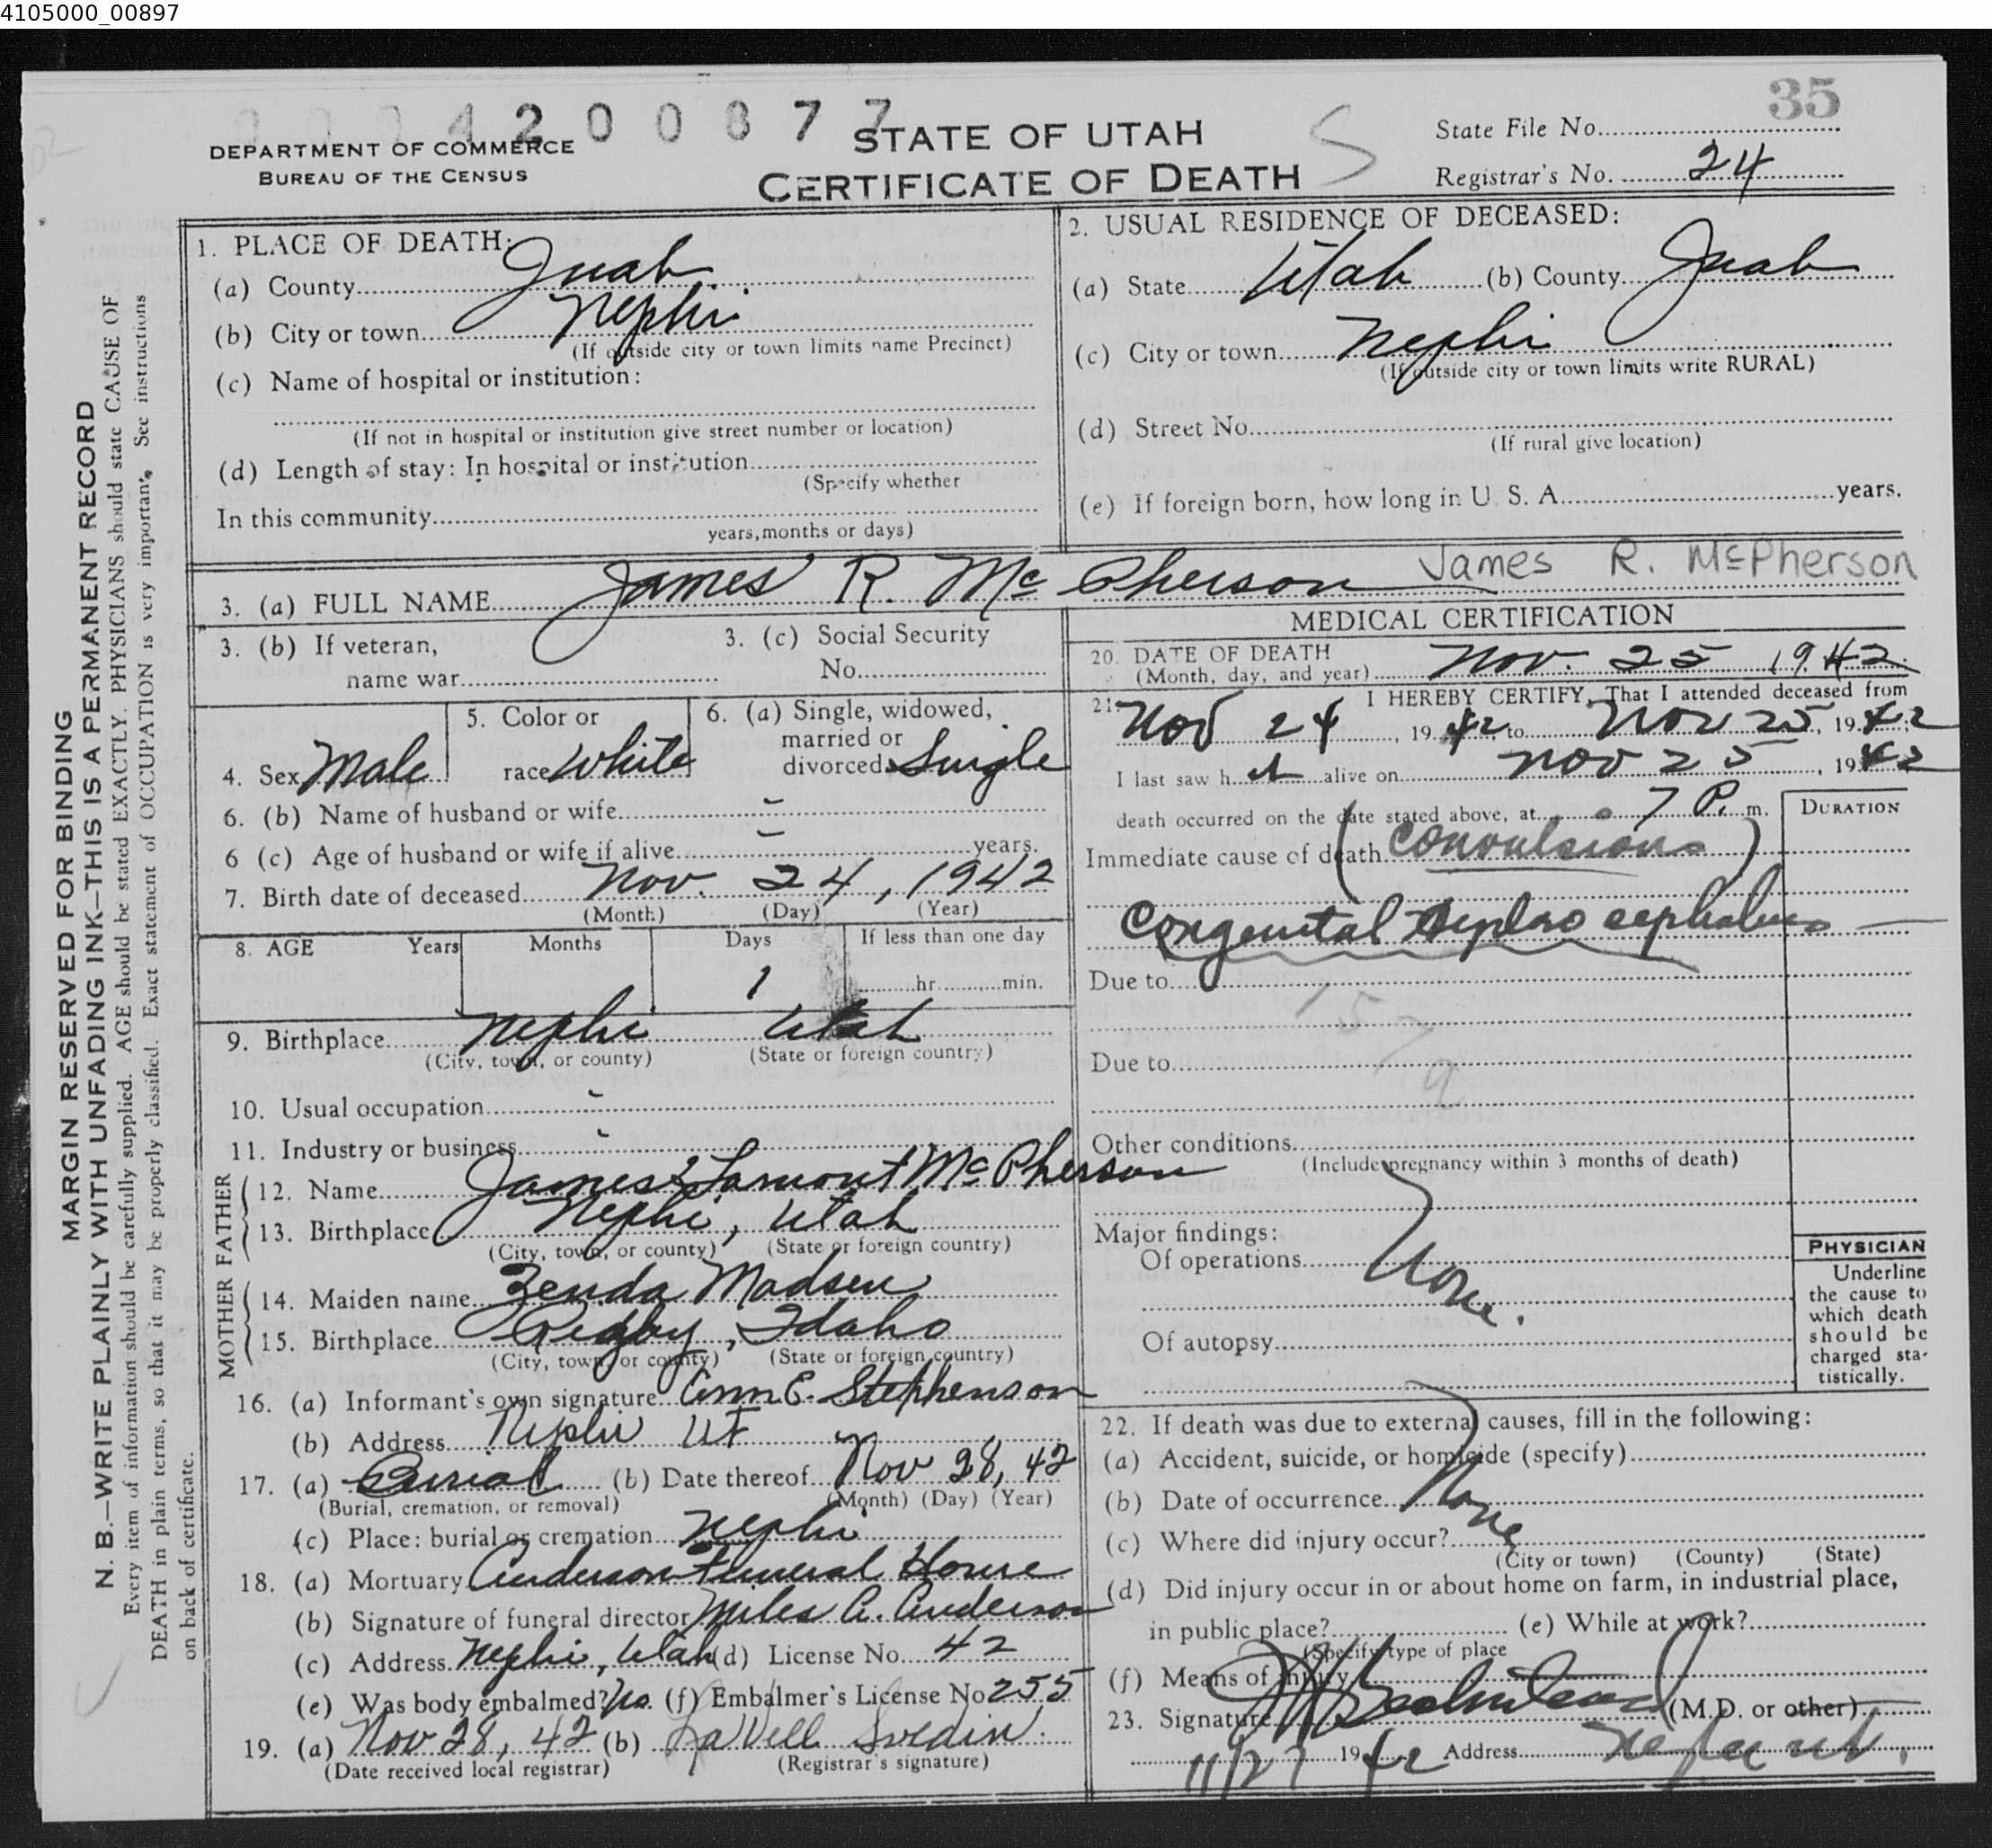 4105000_00897
35
4 2 0 0 8 7 7
DEPARTMENT OF COMMERCE
BUREAU OF THE CENSUS
STATE OF UTAH
CERTIFICATE OF DEATH
S
State File No.
Registrar's No. 24
MARGIN RESERVED FOR BINDING
N. B.—WRITE PLAINLY WITH UNFADING INK—THIS IS A PERMANENT RECORD
Every item of information should be carefully supplied. AGE should be stated EXACTLY. PHYSICIANS should state CAUSE OF
DEATH in plain terms, so that it may be properly classified. Exact statement of OCCUPATION is very important. See instructions
on back of certificate.
1. PLACE OF DEATH:
(a) County Juab
(b) City or town Nephi
(If outside city or town limits name Precinct)
(c) Name of hospital or institution:
(If not in hospital or institution give street number or location)
(d) Length of stay: In hospital or institution
(Specify whether
In this community
years, months or days)
2. USUAL RESIDENCE OF DECEASED:
(a) State Utah (b) County Juab
(c) City or town Nephi
(If outside city or town limits write RURAL)
(d) Street No.
(If rural give location)
(e) If foreign born, how long in U. S. A. years.
3. (a) FULL NAME James R. McPherson James R. McPherson
3. (b) If veteran,
name war
3. (c) Social Security
No.
4. Sex Male
5. Color or
race White
6. (a) Single, widowed,
married or
divorced Single
6. (b) Name of husband or wife -
6 (c) Age of husband or wife if alive - years.
7. Birth date of deceased Nov. 24, 1942
(Month) (Day) (Year)
8. AGE Years Months Days If less than one day
1 hr. min.
9. Birthplace Nephi Utah
(City, town, or county) (State or foreign country)
10. Usual occupation -
11. Industry or business -
FATHER
12. Name James Lamont McPherson
13. Birthplace Nephi, Utah
(City, town, or county) (State or foreign country)
MOTHER
14. Maiden name Zenda Madsen
15. Birthplace Rigby, Idaho
(City, town or county) (State or foreign country)
16. (a) Informant's own signature Stephenson
(b) Address Nephi Ut
17. (a) Burial (b) Date thereof Nov 28, 42
(Burial, cremation, or removal) (Month) (Day) (Year)
(c) Place: burial or cremation Nephi
18. (a) Mortuary Anderson Funeral Home
(b) Signature of funeral director Miles A. Anderson
(c) Address Nephi, Utah (d) License No. 42
(e) Was body embalmed? No. (f) Embalmer's License No 255
19. (a) Nov 28, 42 (b) LaVell Svedin
(Date received local registrar) (Registrar's signature)
MEDICAL CERTIFICATION
20. DATE OF DEATH
(Month, day, and year) Nov. 25 1942
21. I HEREBY CERTIFY, That I attended deceased from
Nov 24, 1942, to Nov 25, 1942
I last saw h alive on Nov 25, 1942
death occurred on the date stated above, at 7 P. m.
DURATION
Immediate cause of death (Convulsions)
Congenital cephalus
Due to
157a
Due to
Other conditions
(Include pregnancy within 3 months of death)
Major findings:
Of operations None.
Of autopsy
PHYSICIAN
Underline
the cause to
which death
should be
charged sta-
tistically.
22. If death was due to external causes, fill in the following:
(a) Accident, suicide, or homicide (specify)
(b) Date of occurrence None
(c) Where did injury occur?
(City or town) (County) (State)
(d) Did injury occur in or about home on farm, in industrial place,
in public place? (e) While at work?
(Specify type of place
(f) Means of injury
23. Signature (M.D. or other)
11/27 1942 Address Nephi Ut.